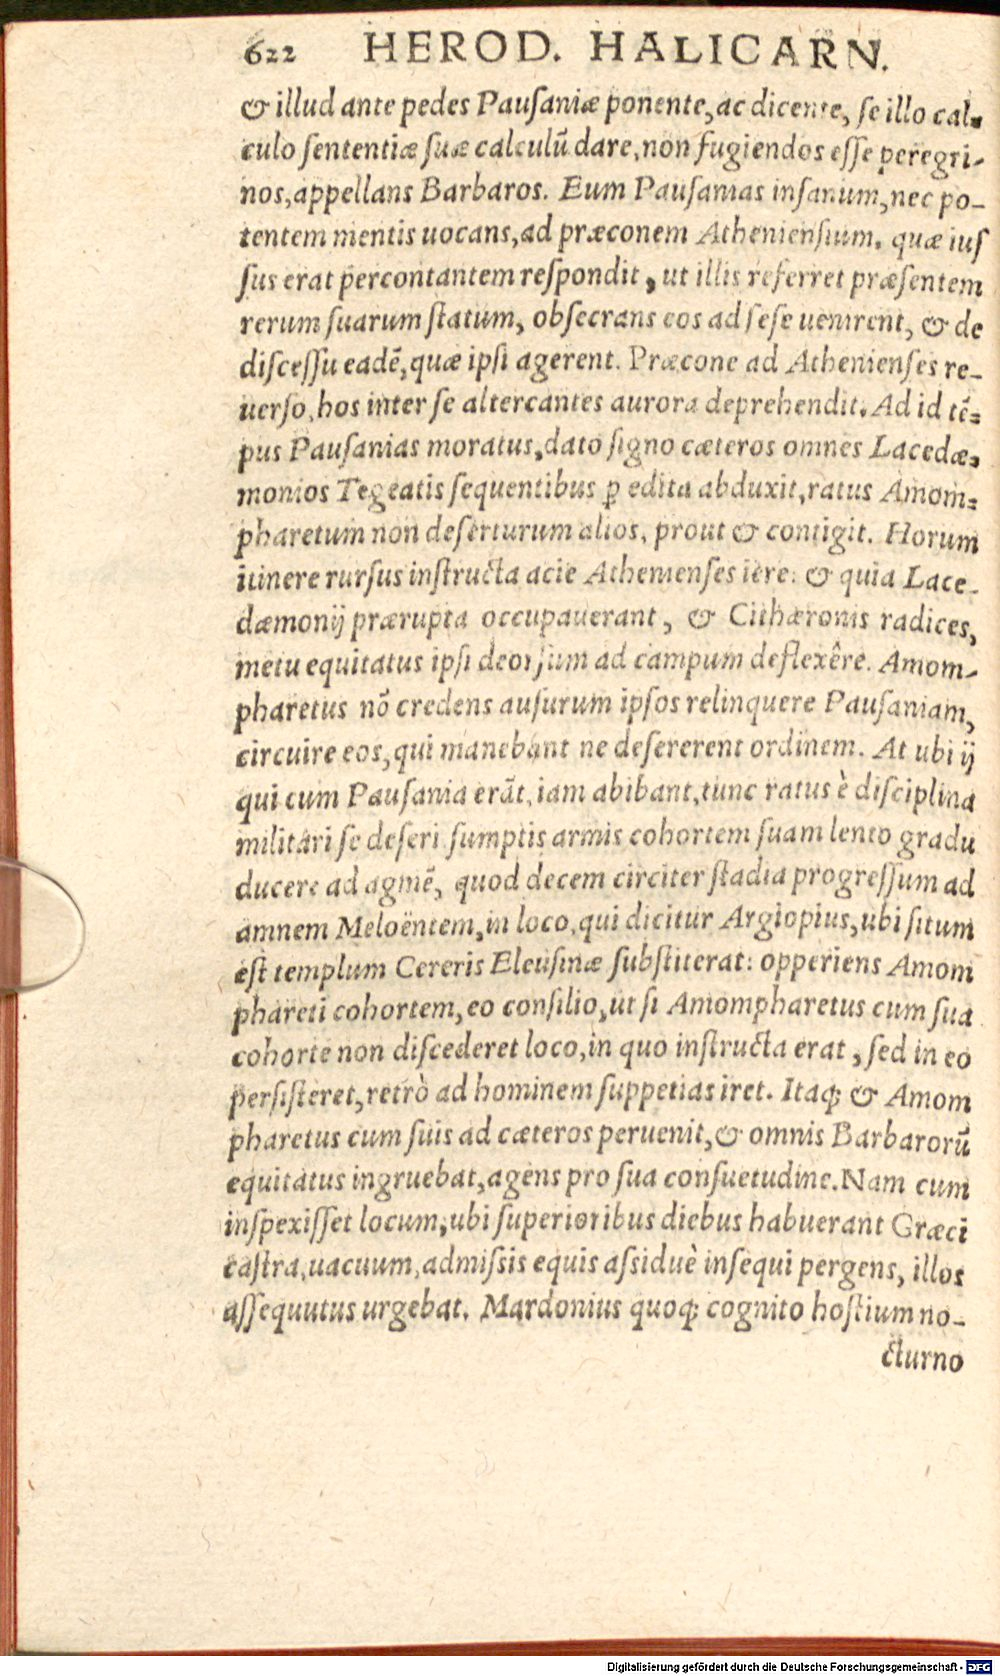 622 HEROD. HALICARN.
& illud ante pedes Pauſaniæ ponente, ac dicente, ſe illo cal-
culo ſententiæ ſuæ calculũ dare, non fugiendos eſſe peregri-
nos, appellans Barbaros. Eum Pauſanias inſanum, nec po-
tentem mentis uocans, ad præconem Athenienſium, quæ iuſ
ſus erat percontantem reſpondit, ut illis referret præſentem
rerum ſuarum ſtatum, obſecrans eos ad ſeſe uenirent, & de
diſceſſu eadẽ, quæ ipſi agerent. Præcone ad Athenienſes re-
uerſo, hos inter ſe altercantes aurora deprehendit. Ad id tẽ-
pus Pauſanias moratus, dato ſigno cæteros omnes Lacedæ-
monios Tegeatis ſequentibus ꝑ edita abduxit, ratus Amom-
pharetum non deſerturum alios, prout & contigit. Horum
itinere rurſus inſtructa acie Athenienſes iêre: & quia Lace-
dæmonij prærupta occupauerant, & Cithæronis radices,
metu equitatus ipſi deorſum ad campum deflexêre. Amom-
pharetus nõ credens auſurum ipſos relinquere Pauſaniam,
circuire eos, qui manebant ne deſererent ordinem. At ubi ij
qui cum Pauſania erãt, iam abibant, tunc ratus è diſciplina
militari ſe deſeri ſumptis armis cohortem ſuam lento gradu
ducere ad agmẽ, quod decem circiter ſtadia progreſſum ad
amnem Meloëntem, in loco, qui dicitur Argiopius, ubi ſitum
eſt templum Cereris Eleuſinæ ſubſtiterat: opperiens Amom
phareti cohortem, eo conſilio, ut ſi Amompharetus cum ſua
cohorte non diſcederet loco, in quo inſtructa erat, ſed in eo
perſiſteret, retrò ad hominem ſuppetias iret. Itaq; & Amom
pharetus cum ſuis ad cæteros peruenit, & omnis Barbarorũ
equitatus ingruebat, agens pro ſua conſuetudine. Nam cum
inſpexiſſet locum, ubi ſuperioribus diebus habuerant Græci
caſtra, uacuum, admiſsis equis aſsiduè inſequi pergens, illos
aſſequutus urgebat. Mardonius quoq; cognito hoſtium no-
cturno
Digitalisierung gefördert durch die Deutsche Forschungsgemeinschaft - DFG